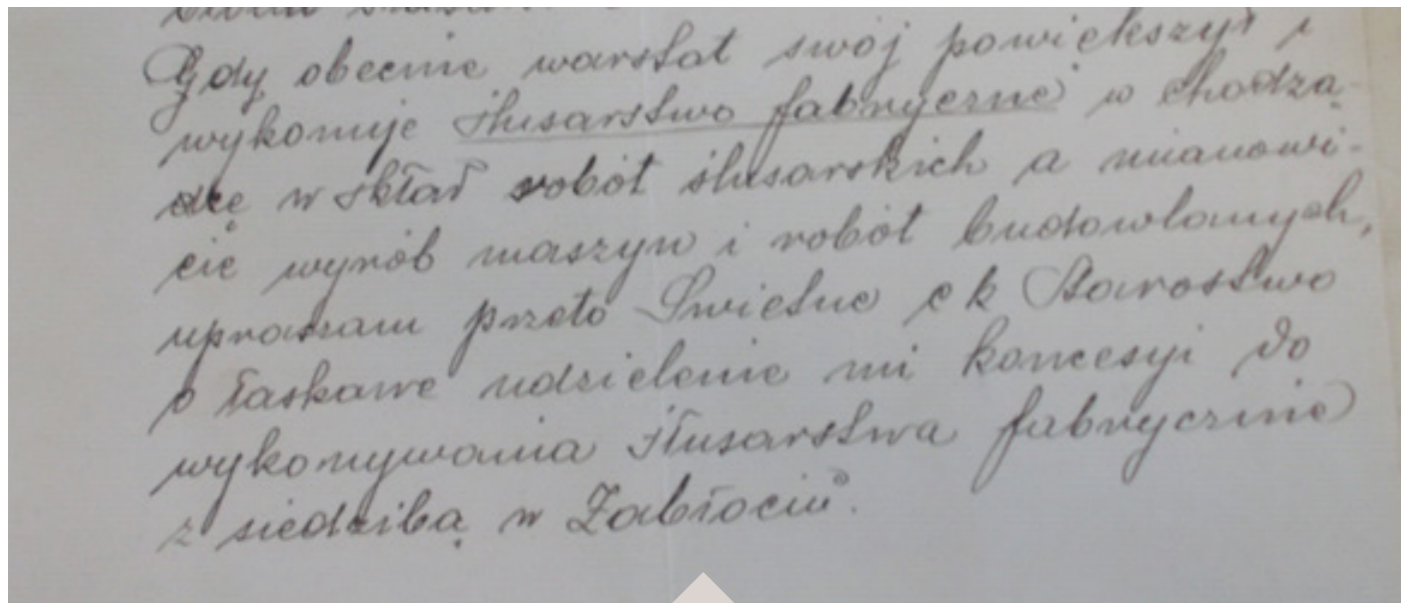 Gdy obecnie warsŧat swój powiekszył i
wykonuje ślusarstwo fabrycznie w chodzą-
dze w skład robót ślusarskich a mianowi-
cie wyrób maszyn i robót budowlanych,
upraszam przeto Swietne c k Starostwo
o łaskawe udzielenie mi koncesyi do
wykonywania ślusarstwa fabrycznie
z siedzibą w Zabłociu.